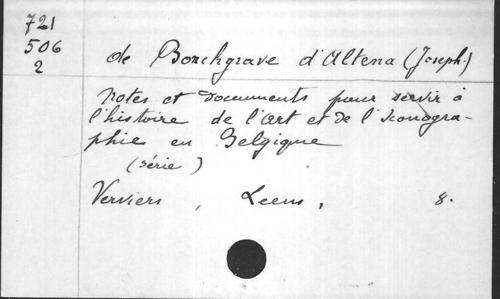 721
506
2
de Borchgrave d'Altena (Joseph.)
Notes et documents pour servir à
l'histoire de l'Art et de l'Iconogra-
phie en Belgique
(série)
Verviers, Leens, 8.